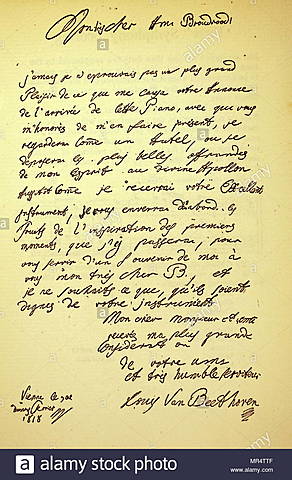 Mon très cher Ami Broadwood!
jamais je n'eprouvais pas un plus grand
Plaisir de ce que me causa votre Annonce
de l'arrivée de cette Piano, avec que vous
m'honorès de m'en faire présent, je
regarderai come un Autel, ou je
deposerai les plus belles offrandes
de mon Esprit au divine Apollon
Aussitôt come je recevrai votre Excellent
Instrument, je vous enverrai d'abord les
Fruits de l'Inspiration des premiers
moments, que j'y passerai, pour
vous servir d'un Souvenir de moi à
vous mon très cher B., et
je ne souhaits ce que, qu'ils soient
dignes de votre instrument.
Mon cher Monsieur et ami
recevés ma plus grande
Consideration
de votre ami
et très humble serviteur
Louis Van Beethoven
Vienne le 3me
du mois Fevrier
1818
alamy
alamy stock photo
MR4TTF
www.alamy.com